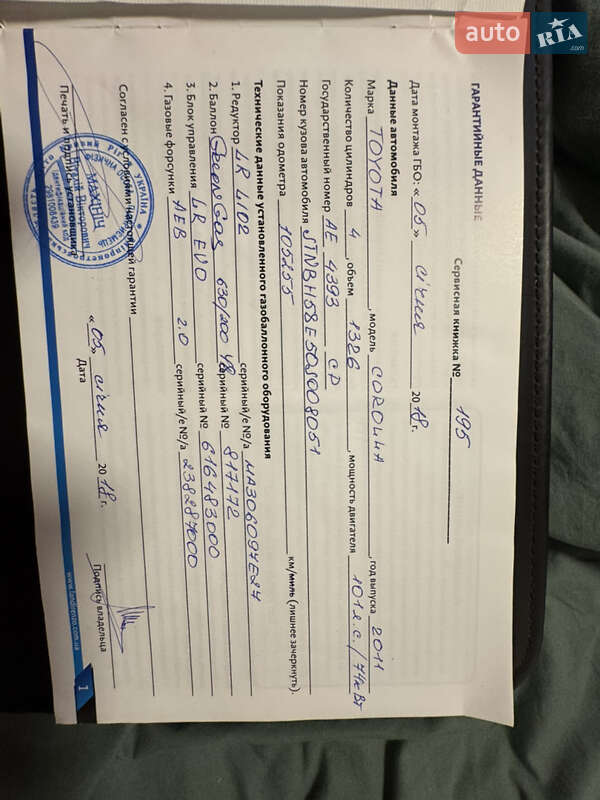 auto RIA .com
ГАРАНТИЙНЫЕ ДАННЫЕ
Сервисная книжка № 195
Дата монтажа ГБО: «05» січня 2018 г.
Данные автомобиля
Марка TOYOTA, модель COROLLA, год выпуска 2011
Количество цилиндров 4, объем 1326, мощность двигателя 101 л.с./74кВт
Государственный номер АЕ 4393 СР
Номер кузова автомобиля JTNBH58E50J008051
Показания одометра 105255 км/миль (лишнее зачеркнуть).
Технические данные установленного газобаллонного оборудования
1. Редуктор LR LI02 серийный/е №/а MA306097E27
2. Баллон GreenGas 630/200 48 серийный № 817172
3. Блок управления LR EVO серийный № 616483000
4. Газовые форсунки AEB 2.0 серийный/е №/а 238287000
Согласен с условиями настоящей гарантии
«05» січня 2018 г.
Печать и подпись установщика Дата Подпись владельца
УКРАЇНА
МАХІНІЧ
Вікторович
www.landirenzo.com.ua 1